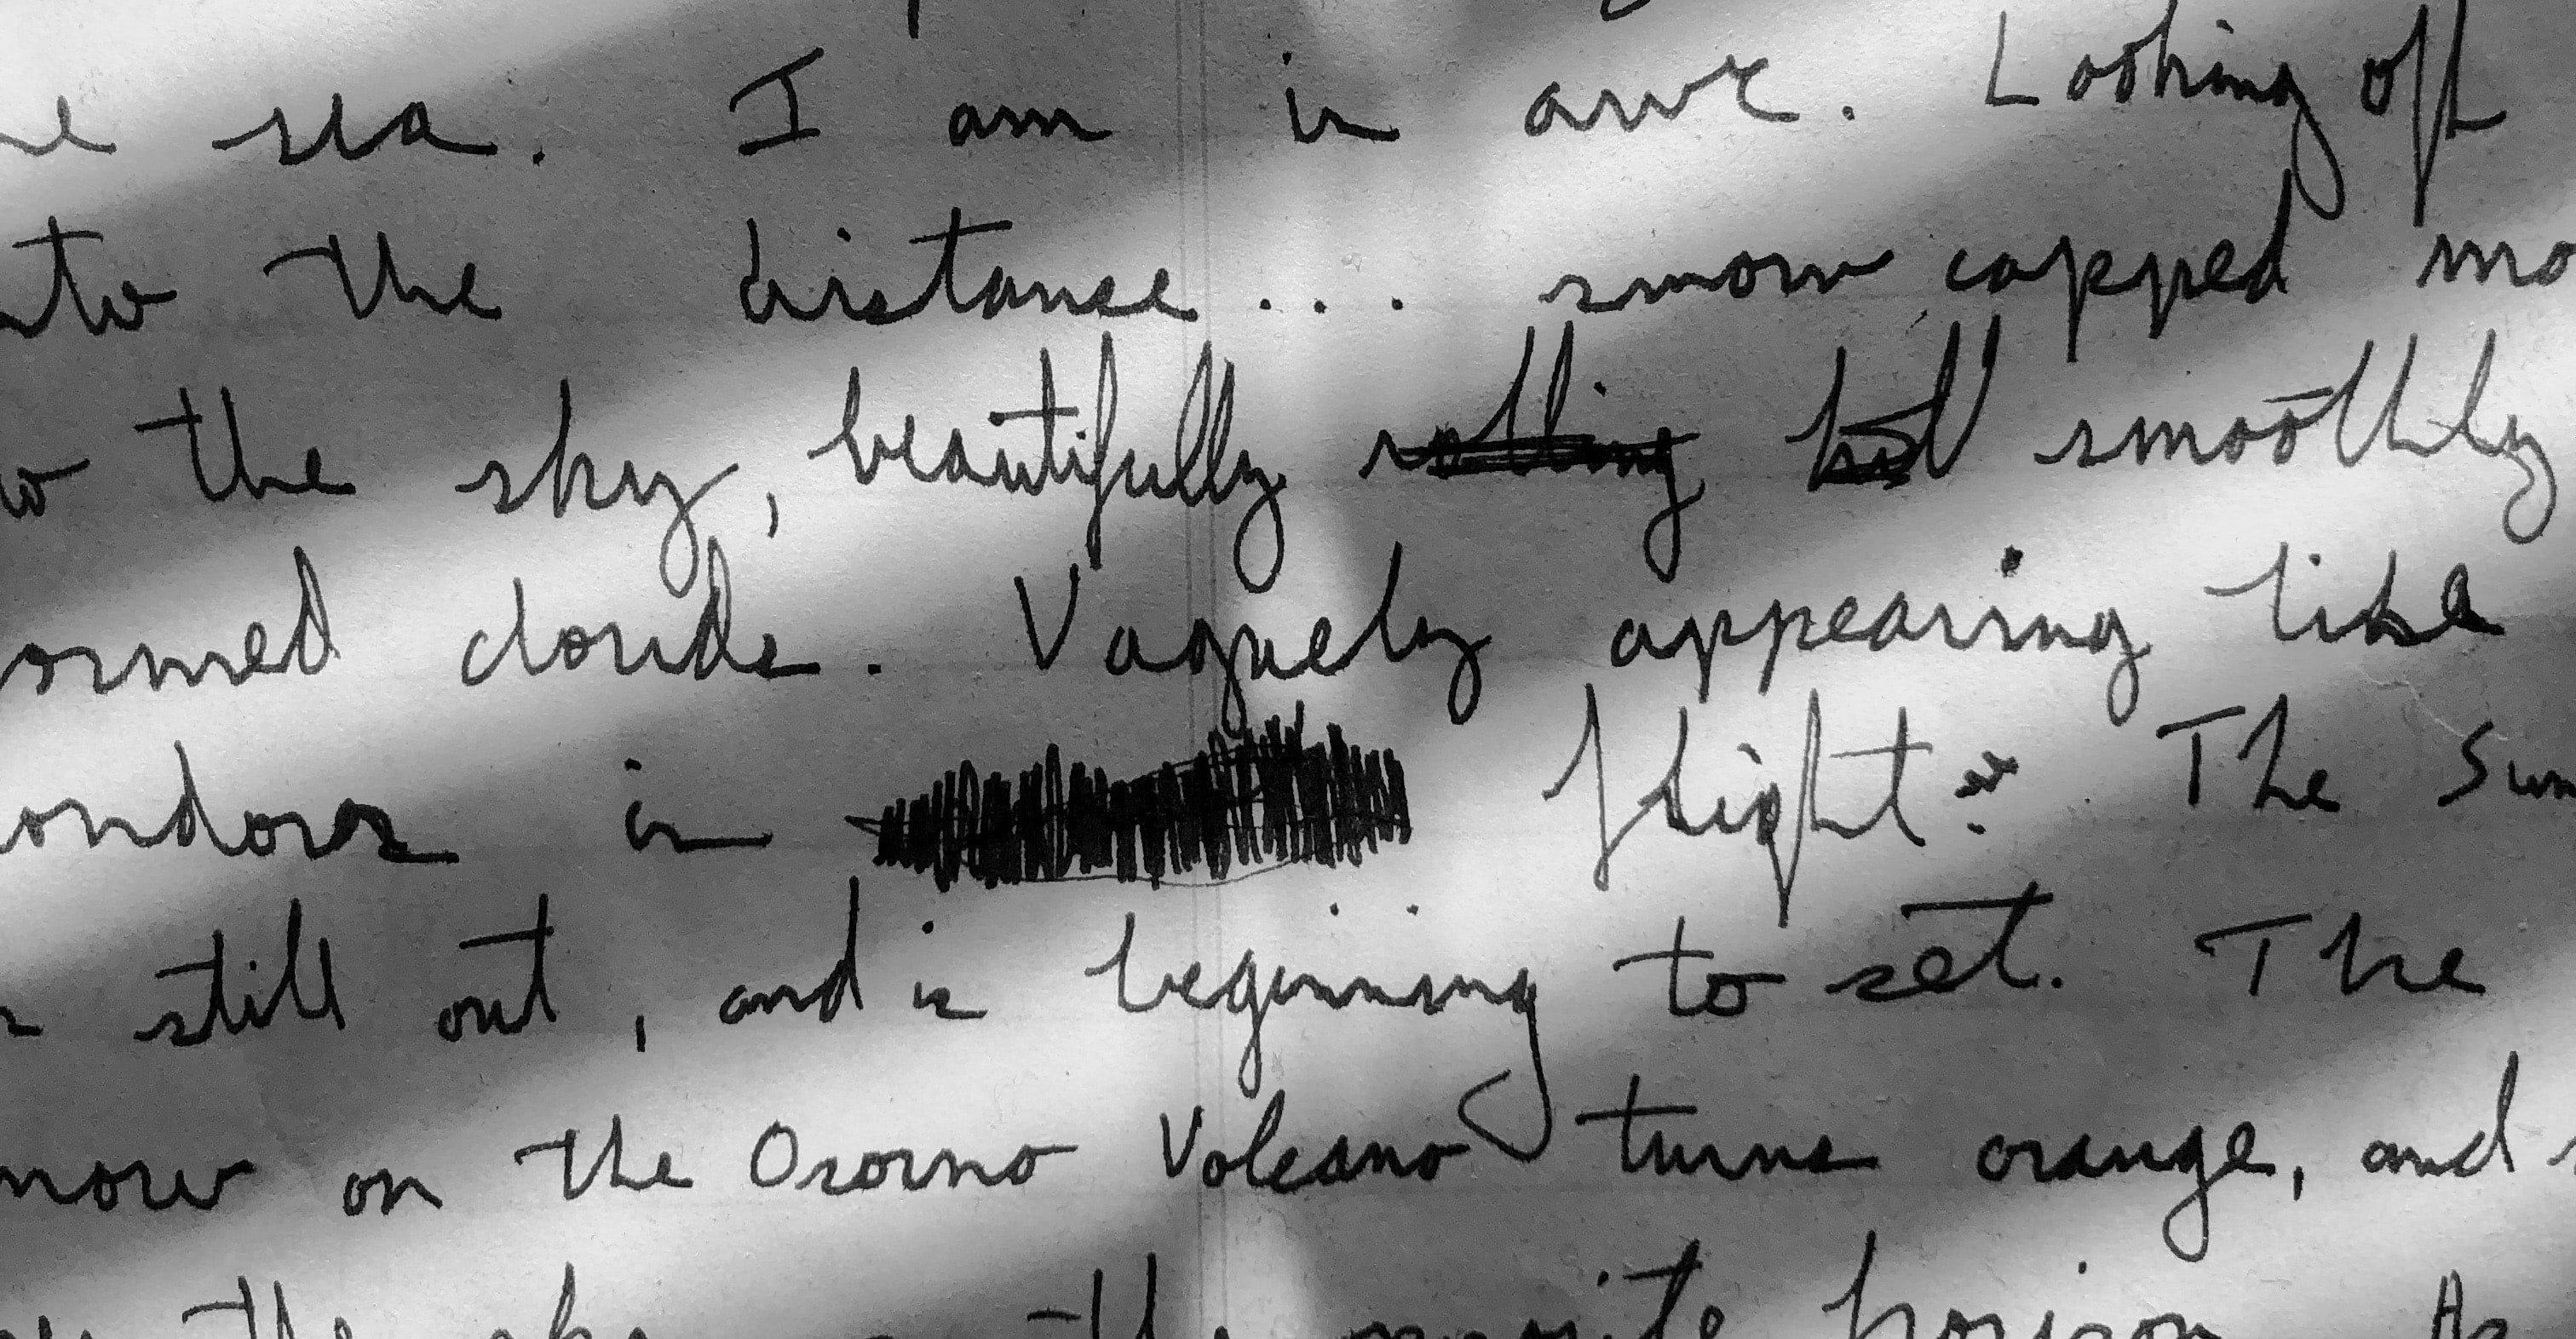 he sea. I am in awe. Looking off
nto the distance... snow capped mo
w the sky, beautifully rolling smoothly
ormed clouds. Vaguely appearing like
ondors in flight. The sun
still out, and is beginning to set. The
now on the Osorno Volcano turns orange, and
the horizon. As